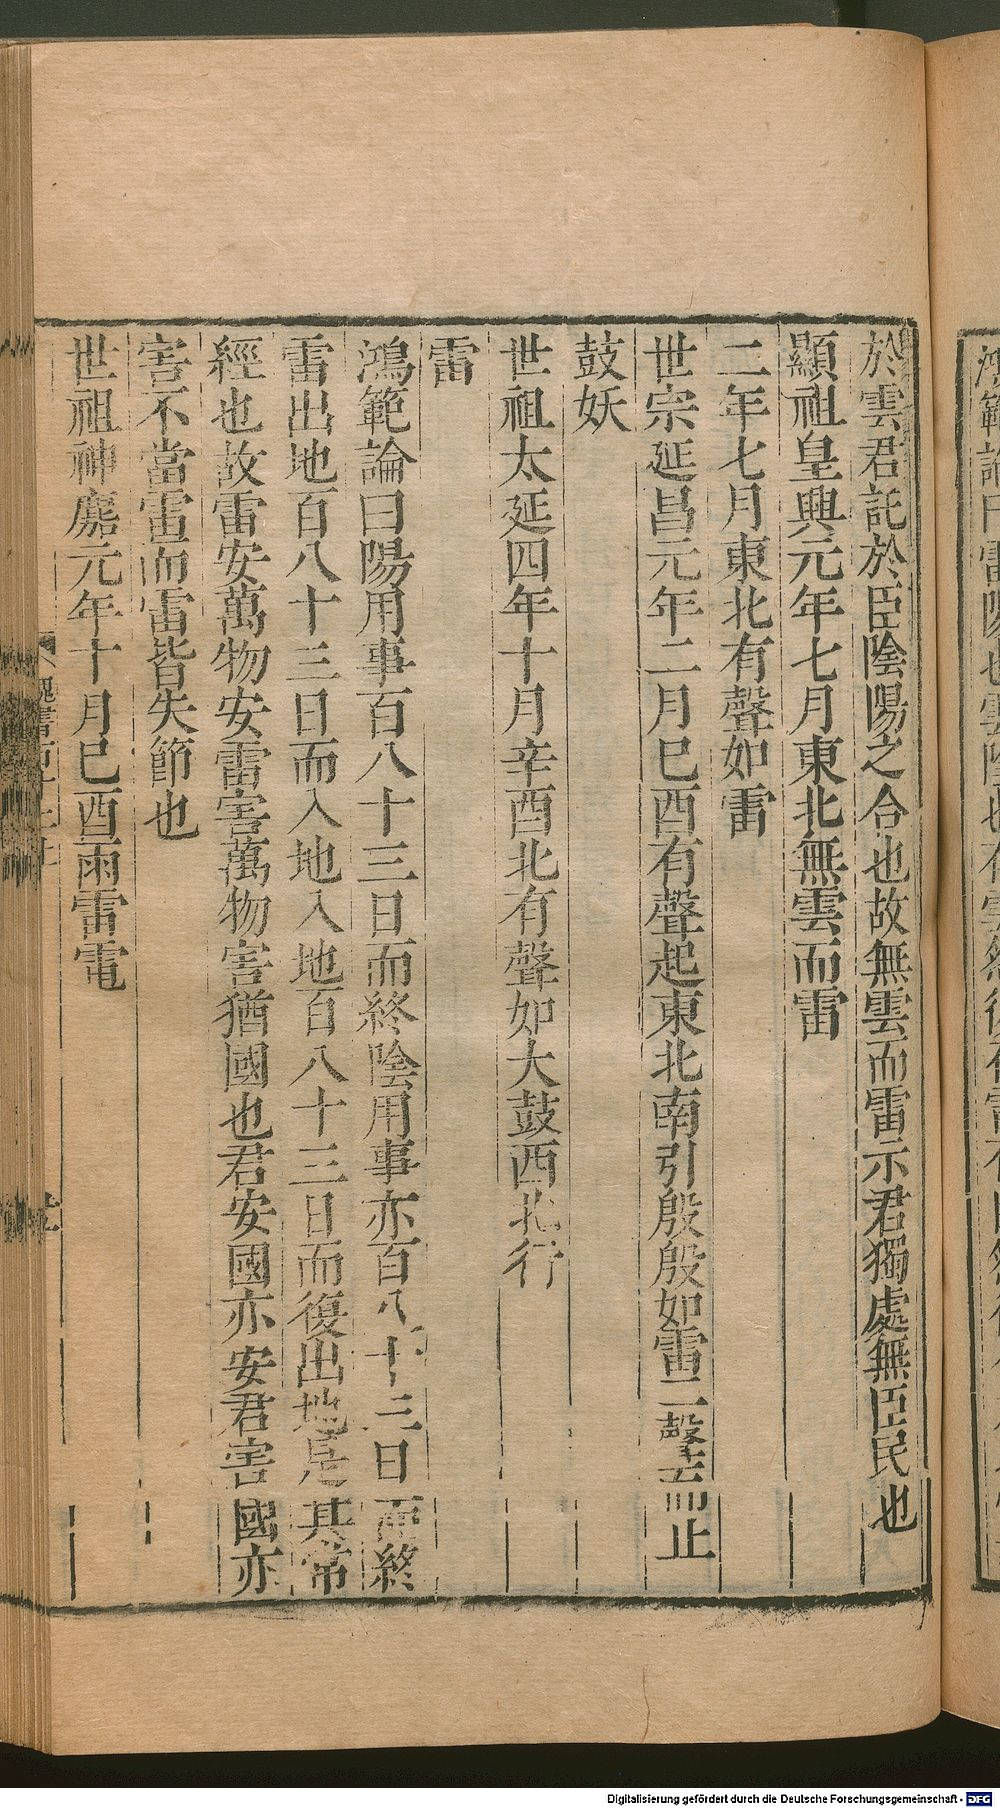 於雲君託於臣陰陽之合也故無雲而雷示君獨處無臣民也
顯祖皇興元年七月東北無雲而雷
二年七月東北有聲如雷
世宗延昌元年二月己酉有聲起東北南引殷殷如雷二聲而止
鼓妖
世祖太延四年十月辛酉北有聲如大鼓西北行
雷
鴻範論曰陽用事百八十三日而終陰用事亦百八十三日而終
雷出地百八十三日而入地入地百八十三日而復出地是其常
經也故雷安萬物安雷害萬物害猶國也君安國亦安君害國亦
害不當雷而雷皆失節也
世祖神䴥元年十月己酉雨雷電
Digitalisierung gefördert durch die Deutsche Forschungsgemeinschaft - DFG